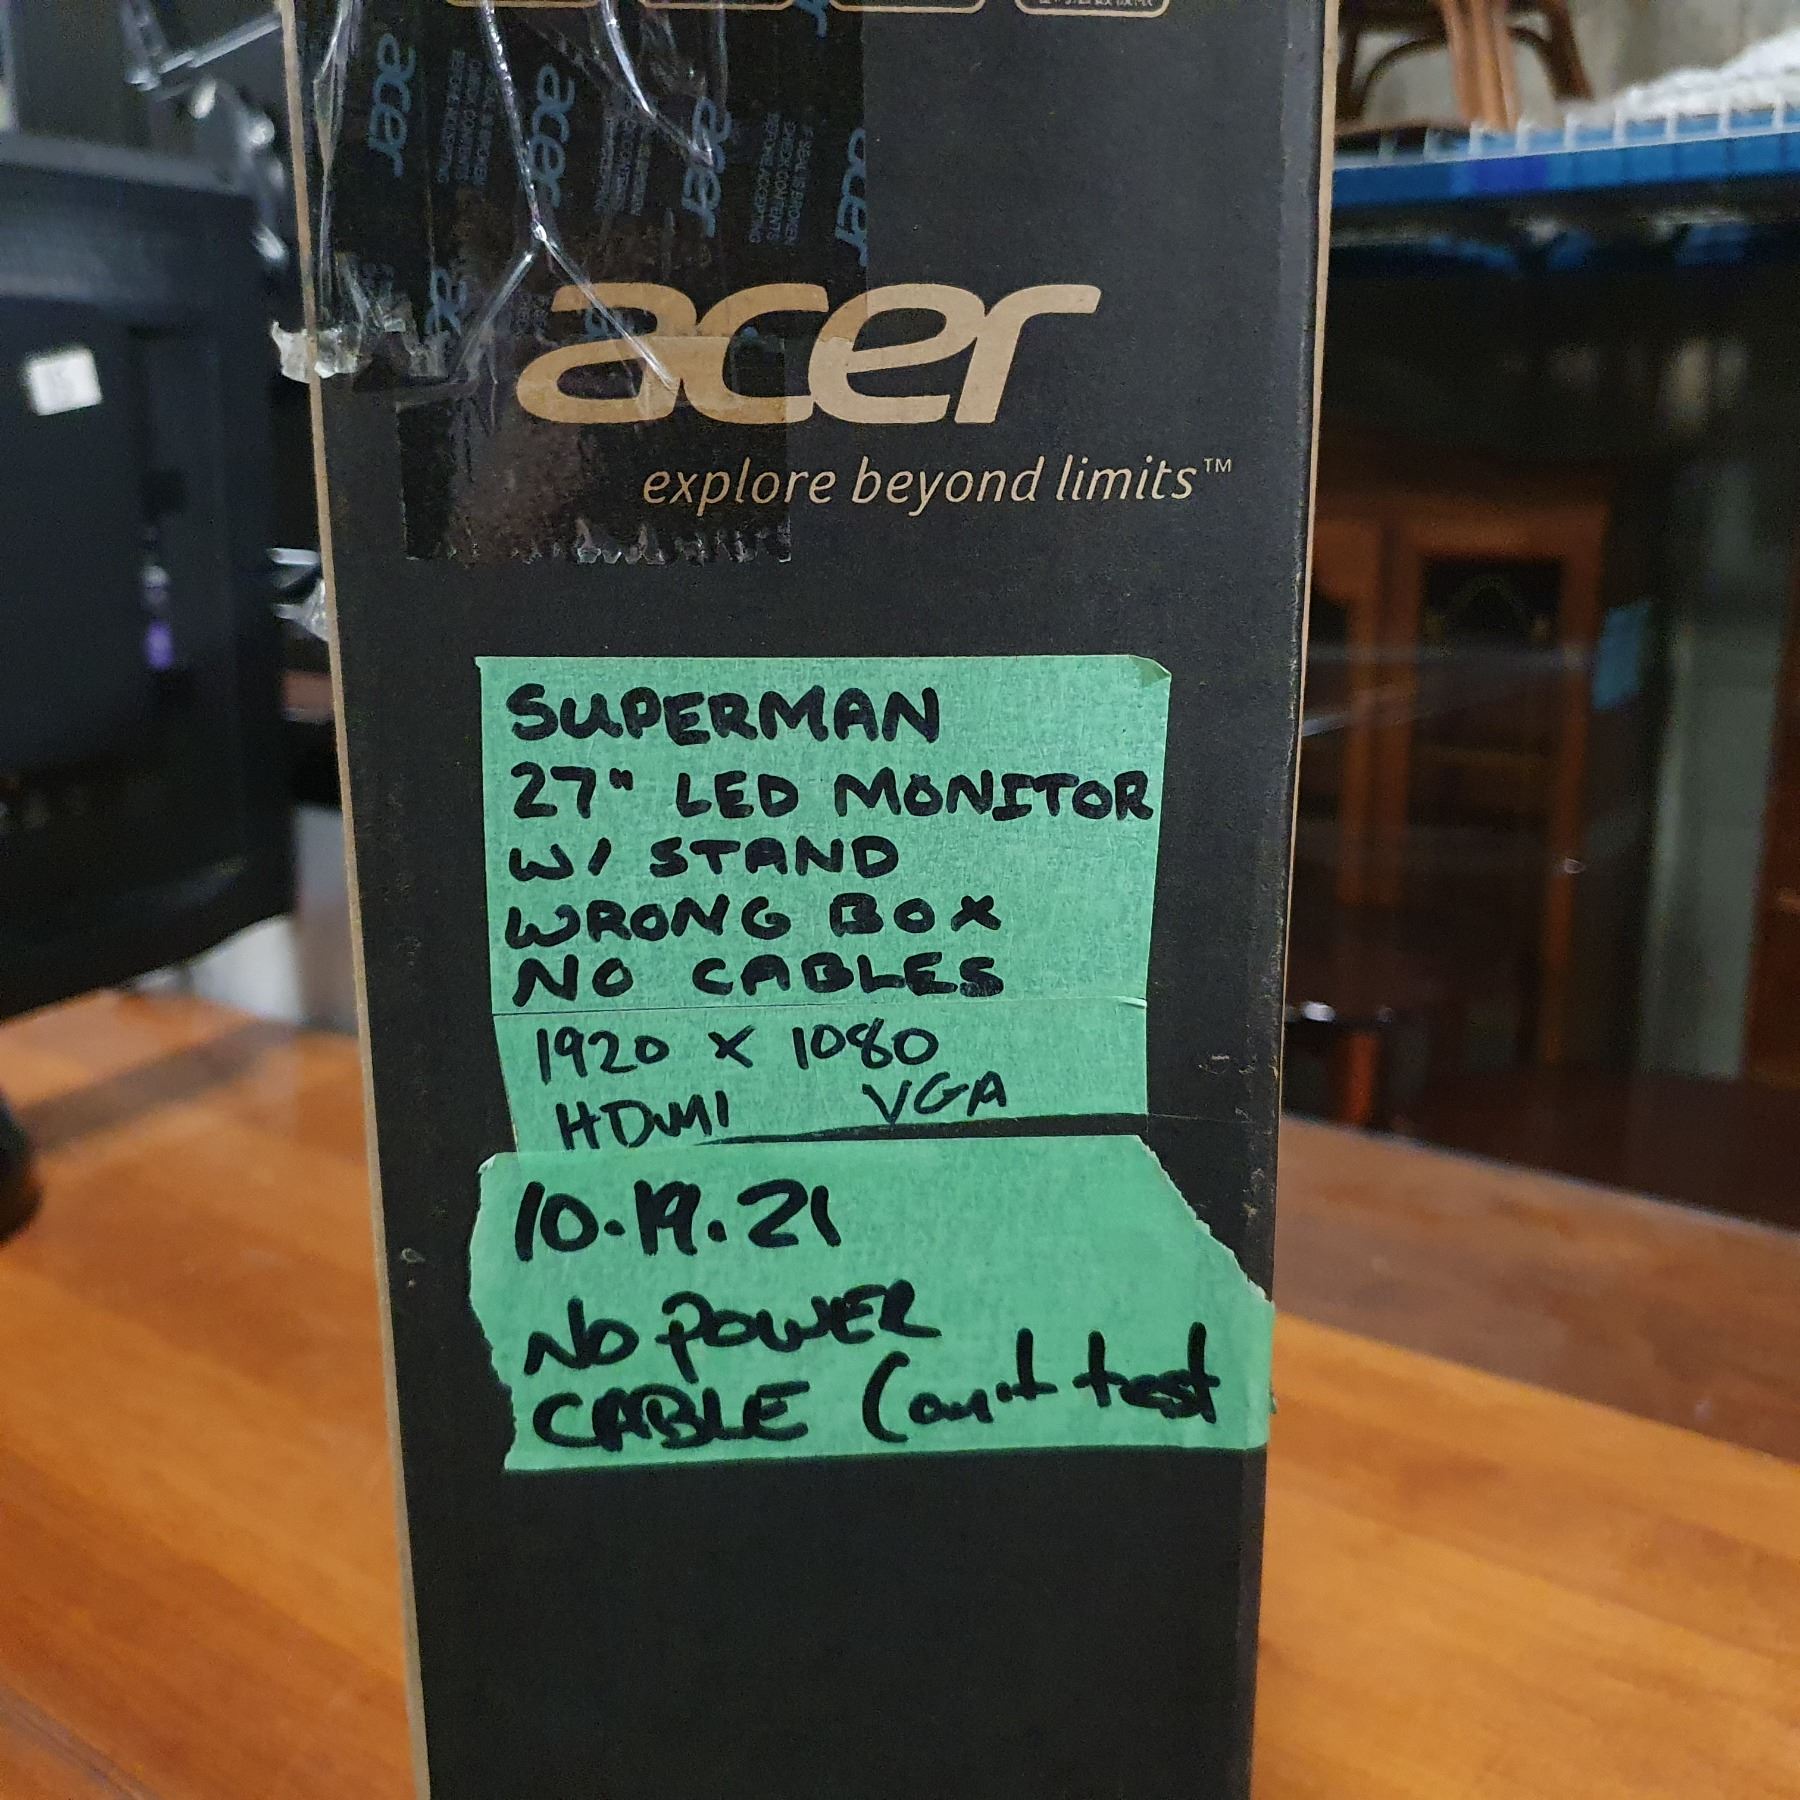 acer
acer
acer
acer
acer
explore beyond limits™
SUPERMAN
27" LED MONITOR
W/ STAND
WRONG BOX
NO CABLES
1920 X 1080
HDMI VGA
10.19.21
NO POWER
CABLE Can't test